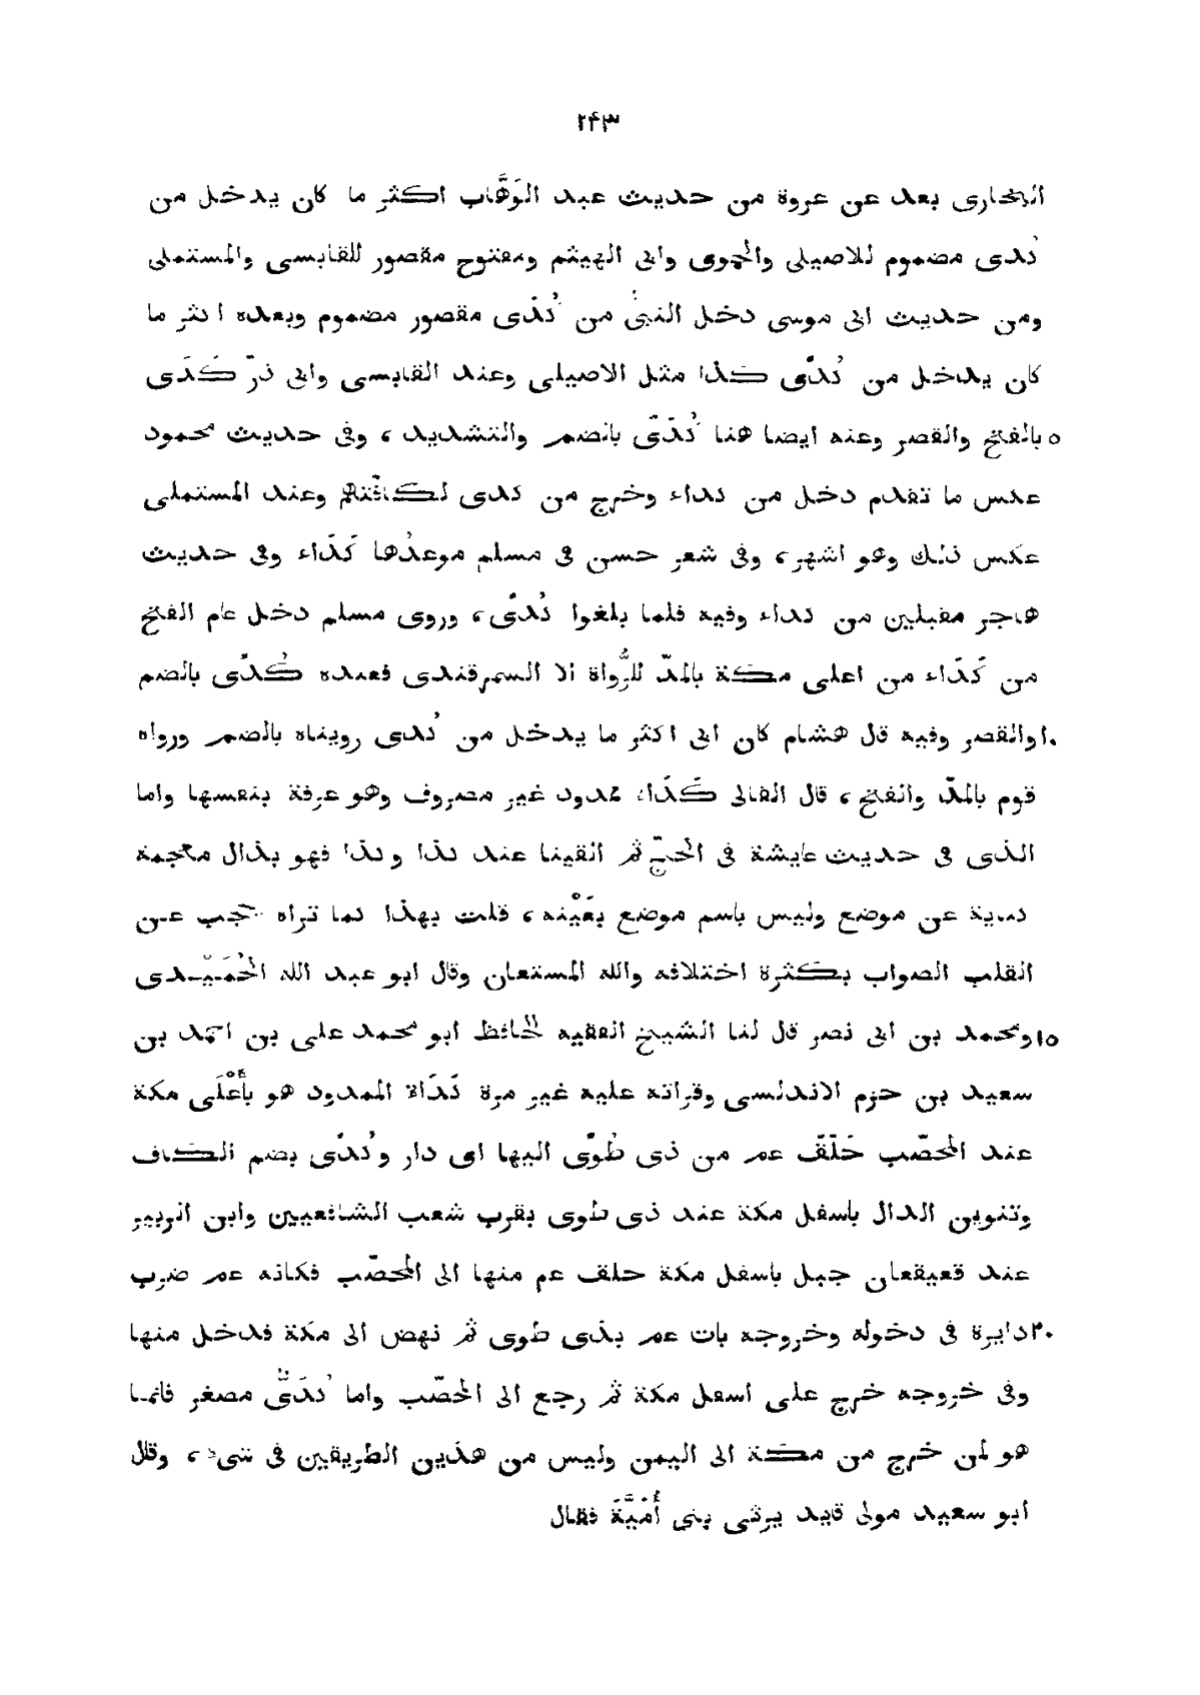 ٢٤٣
البخارى بعد عن عروة من حديث عبد الوَهَّاب اكثر ما كان يدخل من
كُدى مضموم للاصيلى والحموى وابى الهيثم ومفتوح مقصور للقابسى والمستملى
ومن حديث ابى موسى دخل النبىُّ من كُدًى مقصور مضموم وبعده اكثر ما
كان يدخل من كُدًى كذا مثل الاصيلى وعند القابسى وابى ذرّ كَدَى
٥ بالفتح والقصر وعنه ايضا هنا كُدَىّ بالضم والتشديد ، وفى حديث محمود
عكس ما تقدم دخل من كداء وخرج من كدى لكافّتهم وعند المستملى
عكس ذلك وهو اشهر ، وفى شعر حسن فى مسلم موعدُها كَدَاء وفى حديث
هاجر مقبلين من كداء وفيه فلما بلغوا كُدًى ، وروى مسلم دخل عام الفتح
من كَدَاء من اعلى مكة بالمدّ للرُّواة الا السمرقندى فعنده كُدًى بالضم
١٠ والقصر وفيه قال هشام كان ابى اكثر ما يدخل من كُدى رويناه بالضم ورواه
قوم بالمدّ والفتح ، قال القالى كَدَاء ممدود غير مصروف وهو عرفة بنفسها واما
الذى فى حديث عايشة فى الحجّ ثم القينا عند كذا وكذا فهو بذال معجمة
كناية عن موضع وليس باسم موضع بعَيْنه ، قلت بهذا كما تراه يحجب عن
القلب الصواب بكثرة اختلافه والله المستعان وقال ابو عبد الله الحُمَيْدى
١٥ ومحمد بن ابى نصر قال لنا الشيخ الفقيه الحافظ ابو محمد على بن احمد بن
سعيد بن حزم الاندلسى وقراته عليه غير مرة كَدَاءُ الممدود هو بأَعْلَى مكة
عند المحصّب حَلَّقَ عم من ذى طُوًى اليها اى دار وكُدًى بضم الكاف
وتنوين الدال باسفل مكة عند ذى طوى بقرب شعب الشافعيين وابن الزبير
عند قعيقعان جبل باسفل مكة حلق عم منها الى المحصّب فكانه عم ضرب
٢٠ دايرة فى دخوله وخروجه بات عم بذى طوى ثم نهض الى مكة فدخل منها
وفى خروجه خرج على اسفل مكة ثم رجع الى المحصّب واما كُدَىٌّ مصغر فانما
هو لمن خرج من مكة الى اليمن وليس من هذين الطريقين فى شىء ، وقال
ابو سعيد مولى قايد يرثى بنى أُمَيَّةَ فقال